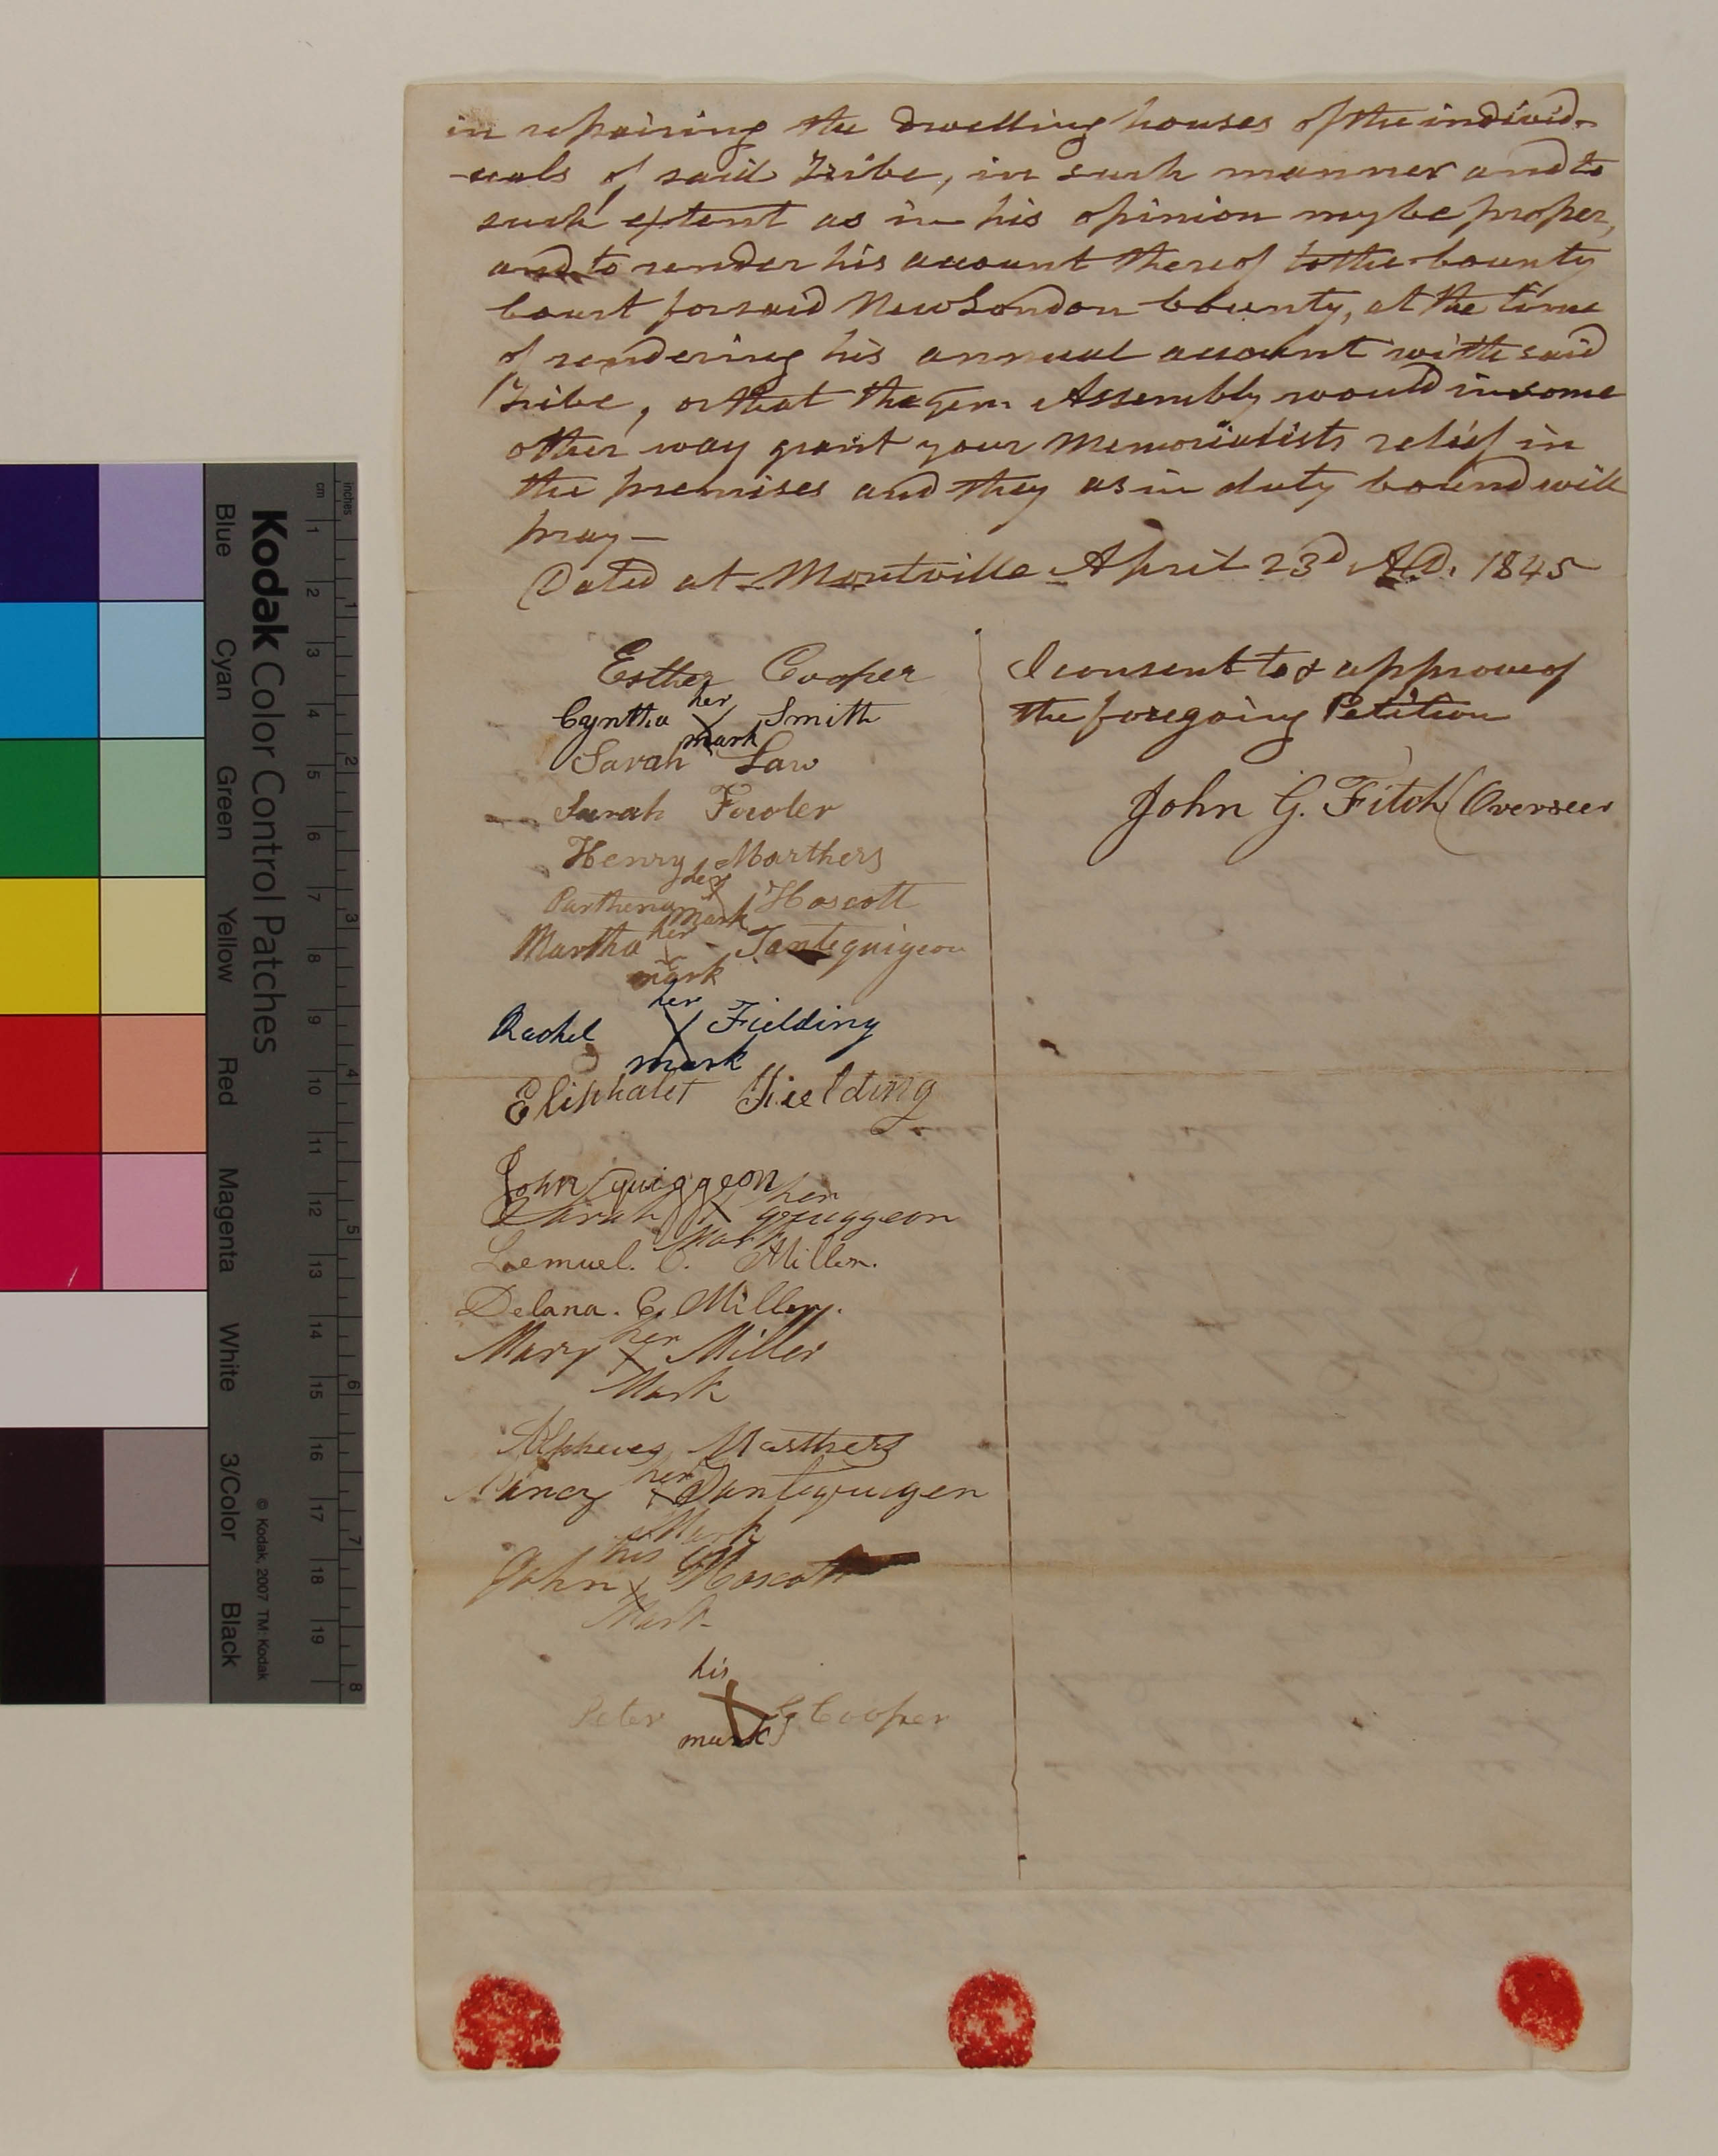 in repairing the dwelling houses of the individ-
-uals of said Tribe, in such manner and to
such extent as in his opinion my be proper,
and to render his account thereof to the County
Court for said New London County, at the time
of rendering his annual account with said
Tribe, or that the Gen. Assembly would in some
other way grant your Memorialists relief in
the premises and they as in duty bound will
pray—
Dated at Montville April 23d A.D. 1845
Esther Cooper
her
Cyntha X Smith
mark
Sarah Law
Sarah Fowler
Henry Marthers
her
Parthena X Hoscott
mark
her
Martha X Tantequigeon
mark
her
Rachel X Fielding
mark
Eliphalet Fielding
John quiggeon
her
Sarah X quiggeon
Mark
Lemuel. C. Miller.
Delana. C. Miller.
her
Mary X Miller
Mark
Alpheues Marthers
her
Nancy X Tantequigen
Mark
his
John X Hoscott
Mark
his
Peter X G Cooper
mark
I consent to & approve of
the foregoing Petition
John G. Fitch (Overseer
Kodak Color Control Patches
Blue Cyan Green Yellow Red Magenta White 3/Color Black
© Kodak, 2007 TM: Kodak
cm 1 2 3 4 5 6 7 8 9 10 11 12 13 14 15 16 17 18 19
inches 1 2 3 4 5 6 7 8